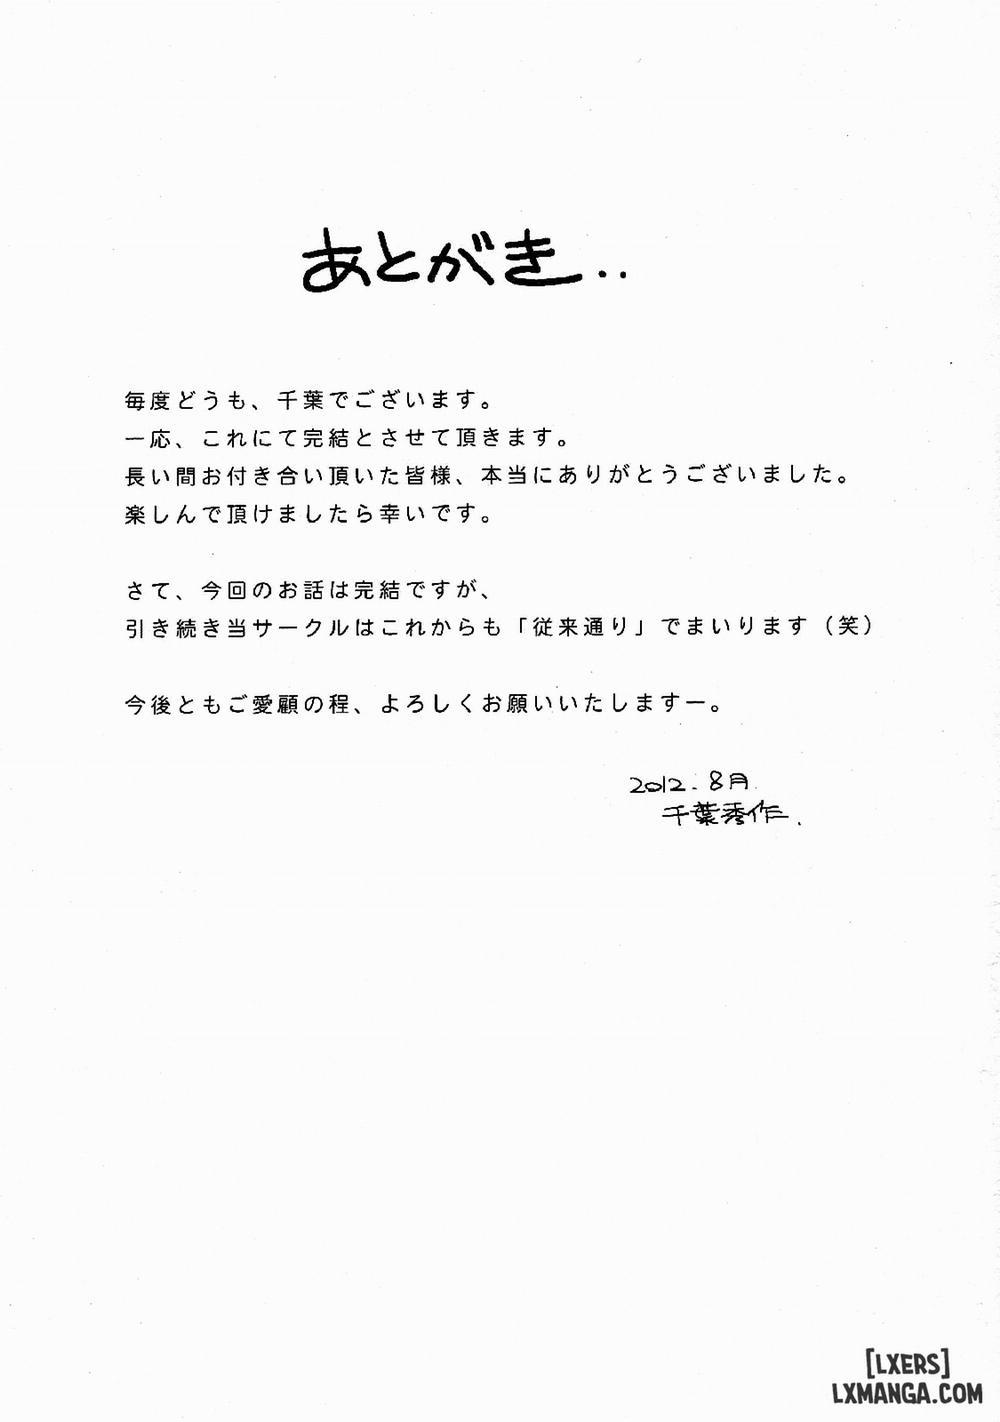 あとがき..
毎度どうも、千葉でございます。
一応、これにて完結とさせて頂きます。
長い間お付き合い頂いた皆様、本当にありがとうございました。
楽しんで頂けましたら幸いです。
さて、今回のお話は完結ですが、
引き続き当サークルはこれからも「従来通り」でまいります（笑）
今後ともご愛顧の程、よろしくお願いいたしますー。
2012.8月.
千葉秀作.
[LXERS]
LXMANGA.COM